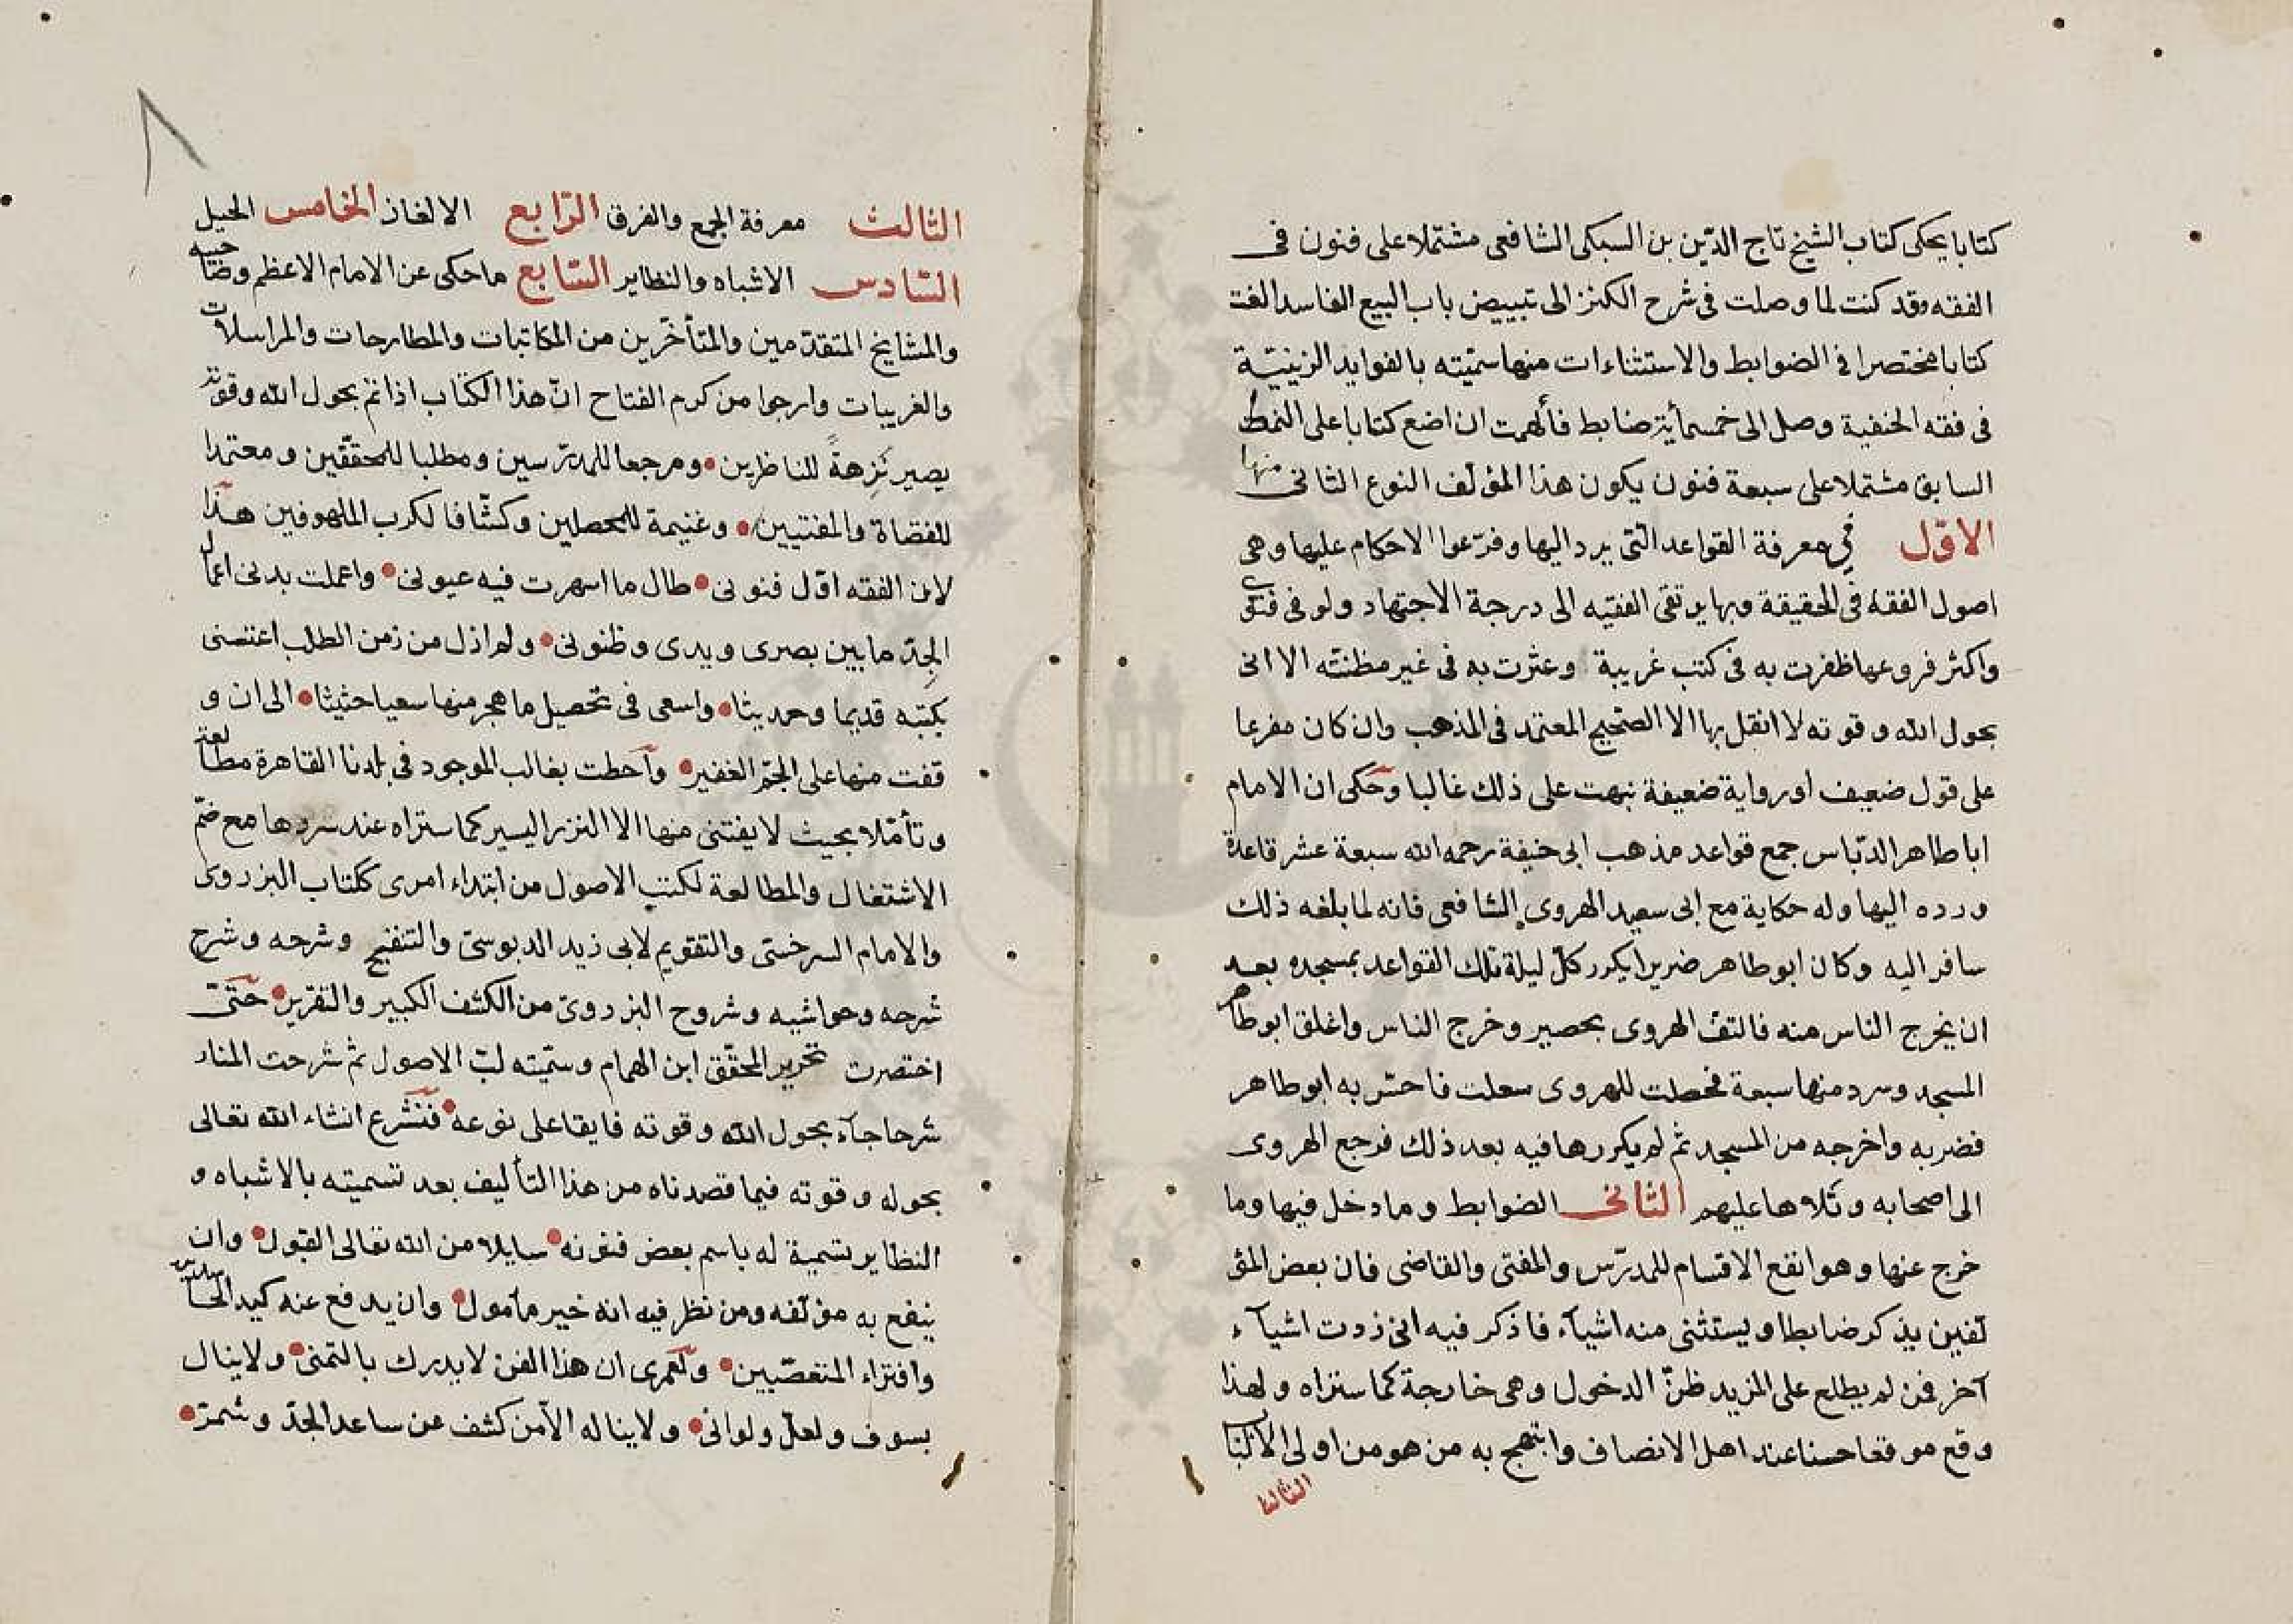 كتابا يحكى كتاب الشيخ تاج الدّين بن السبكى الشافعى مشتملا على فنون فى
الفقه وقد كنت لما وصلت فى شرح الكنز الى تبييض باب البيع الفاسد الفت
كتابا مختصرا فى الضوابط والاستثناءات منها سمّيته بالفوايد الزينيّة
فى فقه الحنفية وصل الى خمسمأية ضابط فألهمت ان اضع كتابا على النمط
السابق مشتملا على سبعة فنون يكون هذا المؤلّف النوع الثانى منها
الاوّل فى معرفة القواعد التى يرد اليها وفرّعوا الاحكام عليها وهى
اصول الفقه فى الحقيقة وبها يرتقى الفقيه الى درجة الاجتهاد ولو فى فتوى
واكثر فروعها ظفرت به فى كتب غريبة وعثرت به فى غير مظنّته الا انى
بحول الله وقوته لا انقل بها الا الصّحيح المعتمد فى المذهب وان كان مفرعا
على قول ضعيف او رواية ضعيفة نبهت على ذلك غالبا وحكى ان الامام
ابا طاهر الدبّاس جمع قواعد مذهب ابى حنيفة رحمه الله سبعة عشر قاعدة
ورده اليها وله حكاية مع ابى سعيد الهروى الشافعى فانه لما بلغه ذلك
سافر اليه وكان ابو طاهر ضريرا يكرر كلّ ليلة تلك القواعد بمسجده بعد
ان يخرج الناس منه فالتفّ الهروى بحصير وخرج الناس واغلق ابو طاهر
المسجد وسرد منها سبعة فحصلت للهروى سعلت فاحسّ به ابو طاهر
فضربه واخرجه من المسجد ثم لم يكررها فيه بعد ذلك فرجع الهروى
الى اصحابه وتلاها عليهم الثانى الضوابط وما دخل فيها وما
خرج عنها وهو انفع الاقسام للمدرّس والمفتى والقاضى فان بعض المؤ
لّفين يذكر ضابطا ويستثنى منه اشيآء فاذكر فيه انى زدت اشيآء
آخر فمن لم يطلع على المزيد ظنّ الدخول وهى خارجة كما ستراه ولهذا
وقع موقعا حسنا عند اهل الانصاف وابتهج به من هو من اولى الالباب
الثالث
الثالث معرفة الجمع والفرق الرّابع الالغاز الخامس الحيل
السّادس الاشباه والنظاير السّابع ما حكى عن الامام الاعظم وصاحبيه
والمشايخ المتقدّمين والمتأخّرين من المكاتبات والمطارحات والمراسلات
والغريبات وارجوا من كرم الفتاح انّ هذا الكتاب اذا تم بحول الله وقوته
يصير نزهةً للناظرين ومرجعا للمدرّسين ومطلبا للمحقّقين ومعتمدا
للقضاة والمفتيين وغنيمة للمحصلين وكشّافا لكرب الملهوفين هذا
لان الفقه اوّل فنونى طال ما اسهرت فيه عيونى واعملت بدنى اعمال
الجدّ ما بين بصرى ويدى وظنونى ولم ازل من زمن الطلب اعتنى
بكتبه قديما وحديثا واسعى فى تحصيل ما هجر منها سعيا حثيثا الى ان و
قفت منها على الجمّ الغفير وآحطت بغالب الموجود فى بلدنا القاهرة مطالعة
وتأمّلا بحيث لا يفتنى منها الا النزر اليسير كما ستراه عند سردها مع ضمّ
الاشتغال والمطالعة لكتب الاصول من ابتداء امرى ككتاب البزدوى
والامام السرخسّى والتقويم لابى زيد الدبوسىّ والتنقيح وشرحه وشرح
شرحه وحواشيه وشروح البزدوىّ من الكشف الكبير والتقرير حتّى
اختصرت تحرير المحقّق ابن الهمام وسمّيته لبّ الاصول ثم شرحت المنار
شرحا جآء بحول الله وقوته فايقا على نوعه فنشرع انشاء الله تعالى
بحوله وقوته فيما قصدناه من هذا التأليف بعد تسميته بالاشباه و
النظاير تسمية له باسم بعض فنونه سايلا من الله تعالى القبول وان
ينفع به مؤلّفه ومن نظر فيه انه خير مأمول وان يدفع عنه كيد الحاسدين
وافتراء المتعصّبين ولعمرى ان هذا الفن لا يدرك بالتمنى ولا ينال
بسوف ولعلّ ولوانى ولا يناله الّا من كشف عن ساعد الجدّ وشمّر